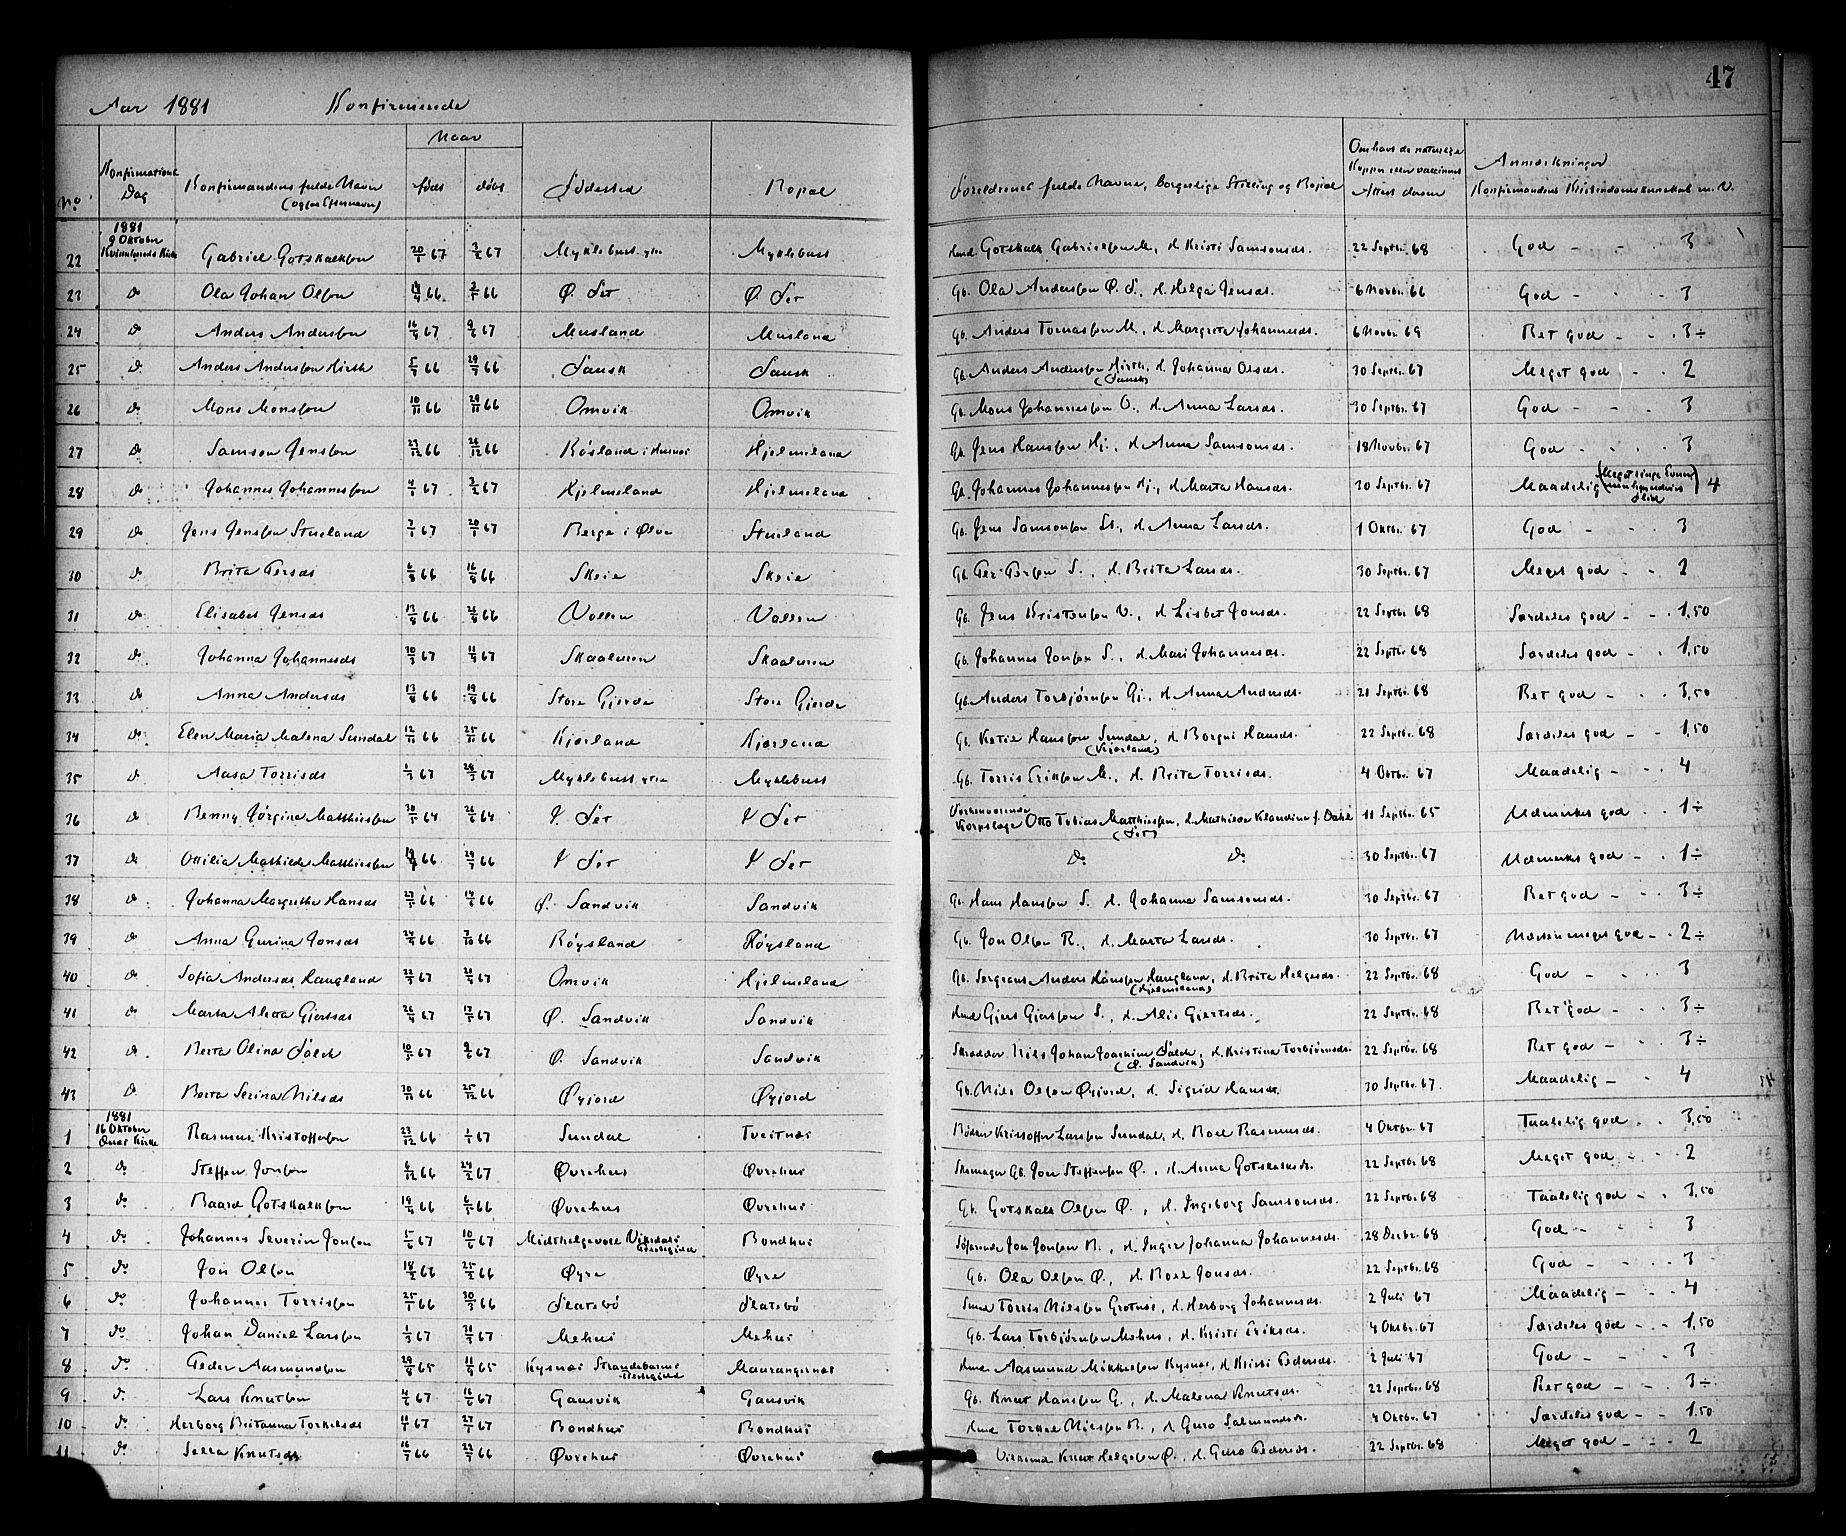 47
Aar 1881 Konfirmerede
Naar
No. Konfirmations Dag Konfirmandens fulde Navn (ogsaa Efternavn) født døbt Fødested Bopæl Foreldrenes fulde Navne, borgerlige Stilling og Bopæl Om havt de naturlige Kopper eller vaccineret Attest derom Anmærkninger Konfirmandens Kristendomskundskab m.V.
1881
9 Oktober
22 Kvinnherreds Kirke Gabriel Gotskalksøn 20/1 67 3/2 67 Myklebust ytre Myklebust Hmd Gotskalk Gabrielsøn M., H. Kristi Samsonsdr. 22 Septbr. 68 God - - 3
23 do Ola Johan Olsøn 66 66 Ø. Sæt Ø. Sæt Gb. Ola Andersøn Ø. S., H. Helga Jensdr. 6 Novbr. 66 God - - - 3
24 do Anders Andersøn 16/4 67 9/6 67 Musland Musland Gb. Anders Tomassøn M., H. Margreta Johannesdr. 6 Novbr 69 Ret god - - . 3÷
25 do Anders Andersøn Hirth 5/7 66 29/7 66 Fausk Fausk Gb. Anders Andersøn Hirth, (Fausk) H. Johanna Olsdr. 30 Septbr. 67 Meget god - . . 2
26 do Mons Monsøn 10/11 66 29/11 66 Omvik Omvik Gb. Mons Johannessøn O., H. Anna Larsdr. 30 Septbr. 67 God - - - 3
27 do Samson Jensøn 27/12 66 26/12 66 Røsland i Husnes Hjelmeland Gb. Jens Hansøn Hj., H. Anna Samsonsdr. 18 Novbr. 67 God - - . 3
28 do Johannes Johannessøn 4/1 67 3/2 67 Hjelmeland Hjelmeland Gb. Johannes Johannessøn Hj., H. Marta Hansdr. 30 Septbr. 67 Maadelig (Meget ringe Evner men Flid) 4
29 do Jens Jensøn Stueland 7/1 67 20/1 67 Berge i Ølve Stueland Gb. Jens Samsonsøn St., H. Anna Larsdr. 1 Oktbr. 67 God - - - 3
30 do Brita Persdr 6/8 66 16/8 66 Skeie Skeie Gb. Per Persøn S., H. Brita Larsdr. 30 Septbr. 67 Meget god - - 2
31 do Elisabet Jensdr 13/8 66 26/8 66 Vollen Vollen Gb. Jens Kristensøn V., H. Lisbet Jonsdr. 22 Septbr 68 Særdeles god - - . 1,50
32 do Johanna Johannesdr 30/3 67 11/4 67 Skaaluren Skaaluren Gb. Johannes Jonsøn S., H. Mari Johannesdr. 22 Septbr 68 Særdeles god - - . 1,50
33 do Anna Andersdr 13/8 66 19/8 66 Store Gjerde Store Gjerde Gb. Anders Torbjørnsøn Gj., H. Anna Andersdr. 21 Septbr. 68 Ret god - . . 3,50
34 do Elen Maria Malena Sundal 12/11 66 25/11 66 Kjerland Kjærland Gb. Ketil Hansøn Sundal, (Kjærland) H. Borgni Hansdr. 22 Septbr. 68 Særdeles god - - 1,50
35 do Aasa Torrisdr 1/7 67 28/7 67 Myklebust ytre Myklebust Gb. Torris Eriksøn M., H. Brita Torrisdr. 4 Oktbr. 67 Maadelig - . . 4
36 do Benny Jørgine Matthiesen 30/5 64 26/6 64 Y. Sæt Y Sæt Forhenværende Korpslæge Otto Tobias Matthiesen, (Sæt) H. Mathilde Klaudine f. Dahl 11 Septbr. 65 Udmerket god . 1÷
37 do Ottilia Mathilde Matthiesen 66 29/7 66 Y Sæt Y Sæt do do 30 Septbr. 67 Udmerket god - . 1÷
38 do Johanna Margrethe Hansdr 27/5 66 14/6 66 Ø. Sandvik Sandvik Gb. Hans Hansøn S., H. Johanna Samsonsdr. 30 Septbr. 67 Ret god - - . 3÷
39 do Anna Gurina Jonsdr 24/9 66 7/10 66 Røysland Røysland Gb. Jon Olsøn R., H. Marta Larsdr. 30 Septbr. 67 Næsten meget god - . 2÷
40 do Sofia Andersdr Haugland 22/3 67 21/4 67 Omvik Hjelmeland Gb. Sergeant Anders Hansøn Haugland, (Hjelmeland) H. Brita Helgesdr. 22 Septbr. 68 God - - . . 3
41 do Marta Aletta Gjertsdr 26/4 67 17/5 67 Ø. Sandvik Sandvik Hmd Gjert Gjertsøn S., H. Alis Gjertsdr. 22 Septbr. 68 Ret god - . . 3÷
42 do Berta Olina Falch 10/5 67 9/6 67 Ø. Sandvik Sandvik Skrædder Nils Johan Joachim Falch, (Ø. Sandvik) H. Kristina Torbjørnsdr. 22 Septbr. 68 Ret god - - . 3÷
43 do Berta Serina Nilsdr 30/11 66 25/12 66 Øyjord Øyjord Gb. Nils Olsøn Øyjord, H. Sigrid Hansdr. 30 Septbr. 67. Maadelig - . 4
1881
16 Oktober
1 Ænes Kirke Rasmus Kristoffersøn 23/12 66 1/1 67 Sundal Tveitnæs Bødker Kristoffer Larsøn Sundal, H. Boel Rasmusdr. 4 Oktbr. 67 Taalelig god . . 3,50
2 do Steffen Jonsøn 6/12 66 24/2 67 Øvrehus Øvrehus Skomager Gb. Jon Steffensøn Ø., H. Anna Gotskalksdr. 22 Septbr. 68 Meget god - . . 2
3 do Baard Gotskalksøn 19/4 66 6/5 66 Øvrehus Øvrehus Gb. Gotskalk Olsøn Ø., H. Ingeborg Samsonsdr. 22 Septbr. 68 Taalelig god - . 3,50
4 do Johannes Severin Jonsøn 5/6 67 10/6 67 Midthelgevold Vikedals Præstegield Bondhus Søfarende Jon Jonsøn B., H. Inger Johanna Johannesdr. 28 Decbr. 68 God - . . . 3
5 do Jon Olsøn 18/2 66 25/2 66 Øyre Øyre Gb. Ola Olsøn Ø., H. Boel Jonsdr. 22 Septbr. 68 God - . . . 3
6 do Johannes Torrissøn 25/1 66 30/3 66 Flatebø Flatebø Smed Torris Nilsøn Grotnes, H. Herborg Johannesdr. 2 Juli 67 Maadelig - - . 4
7 do Johan Daniel Larsøn 1/3 67 31/3 67 Mehus Mehus Gb. Lars Torbjørnsøn Mehus, H. Kristi Eriksdr. 4 Oktbr. 67 Særdeles god - . 1,50
8 do Peder Aasmundsøn 29/8 65 11/9 65 Kysnæs Strandebarms Præstegield Mauranger Hmd Aasmund Mikkelsøn Kysnæs, H Kristi Pedersdr. 2 Juli 67 God - - . . 3
9 do Lars Knutsøn 4/2 67 16/2 67 Gausvik Gausvik Gb. Knut Hansøn G., H. Malena Knutsdr. 22 Septbr. 68 Ret god - . . 3÷
10 do Herborg Britanna Torkelsdr 11/1 67 27/1 67 Bondhus Bondhus Hmd Torkel Nilsøn B., H Guro Salmundsdr. 4 Oktbr. 67 Særdeles god - - 1,50
11 do Sella Knutsdr 16/7 66 22/7 66 Øvrehus Øvrehus Knut Helgesøn Ø., H. Guro Pedersdr. 22 Septbr. 68 Meget god - . . 2